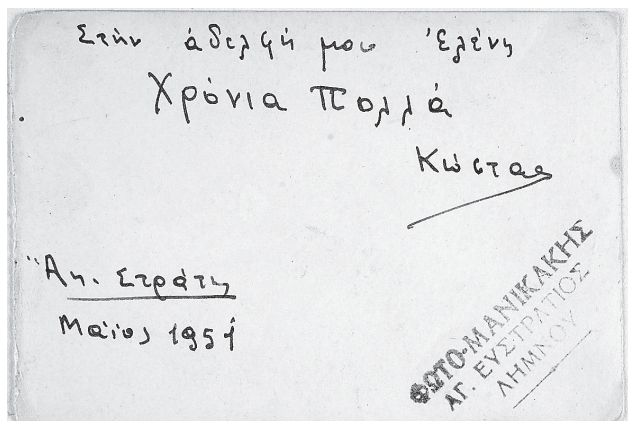 Στήν ἀδελφή μου Ἑλένη
Χρόνια Πολλά
Κώστας
Ἄη. Στράτης
Μάϊος 1951
ΦΩΤΟ-ΜΑΝΙΚΑΚΗΣ
ΑΓ. ΕΥΣΤΡΑΤΙΟΣ
ΛΗΜΝΟΥ